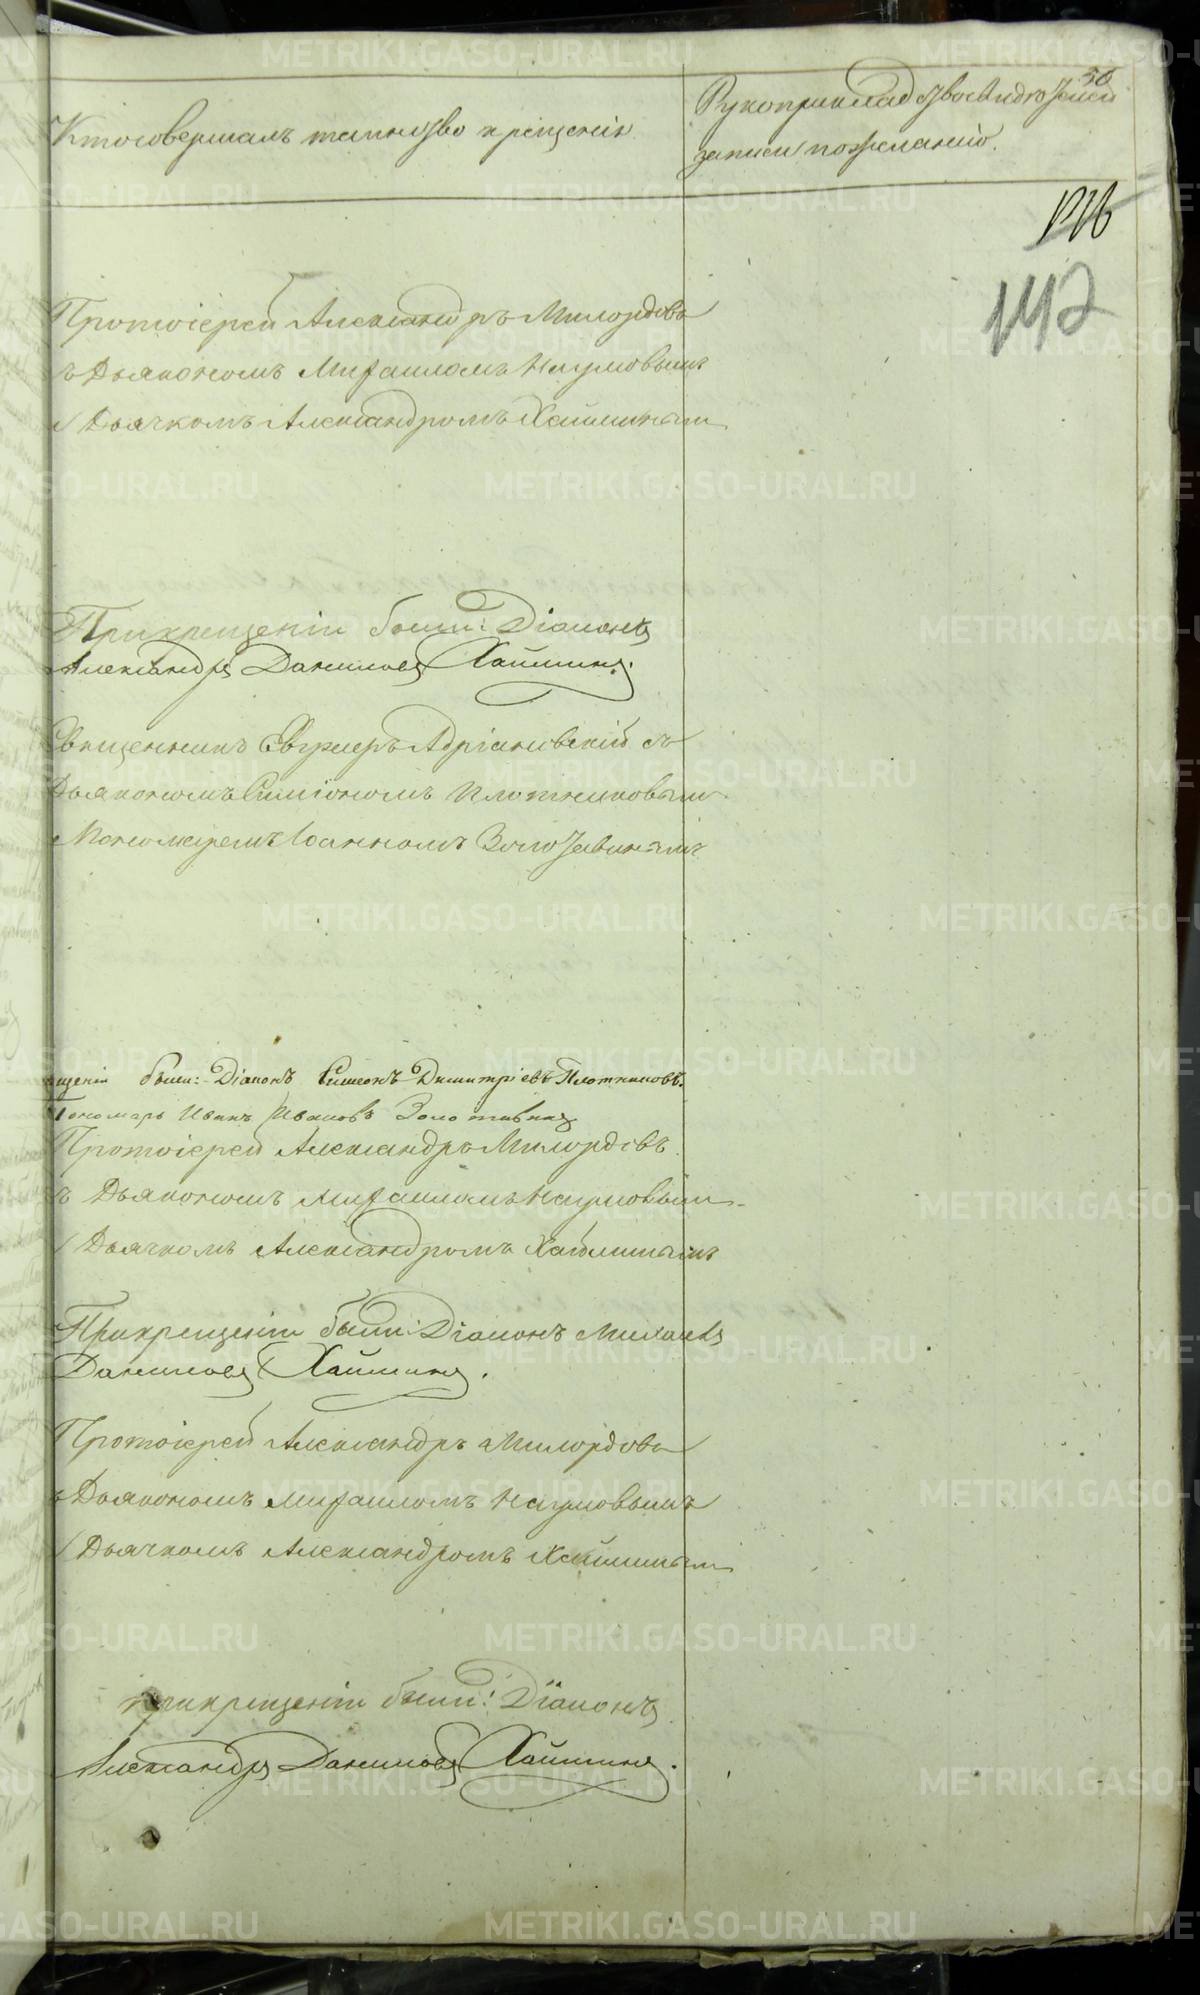 Кто совершалъ таинство крещенія
Рукоприкладство свидѣтелей
записи по желанію.
56
176
142
Протоіерей Александръ Милордовъ
съ Дьякономъ Михаиломъ Наумовымъ
и Дьячкомъ Александромъ Хайминымъ
При крещеніи были: Діаконъ
Александръ Даниловъ Хайминъ.
Священникъ Евгширъ Адріановскій съ
Дьякономъ Симіономъ Плотниковымъ
и Пономаремъ Іоанномъ Золотавинымъ
были: Діаконъ Симеонъ Димитріевъ Плотниковъ.
Пономарь Иванъ Ивановъ Золотавинъ
Протоіерей Александръ Милордовъ
съ Дьякономъ Михаиломъ Наумовымъ
и Дьячкомъ Александромъ Хайминымъ
При крещеніи были: Діаконъ Михаилъ
Даниловъ Хайминъ.
Протоіерей Александръ Милордовъ
съ Дьякономъ Михаиломъ Наумовымъ
и Дьячкомъ Александромъ Хайминымъ
при крещеніи были: Діаконъ
Александръ Даниловъ Хайминъ.
METRIKI.GASO-URAL.RU